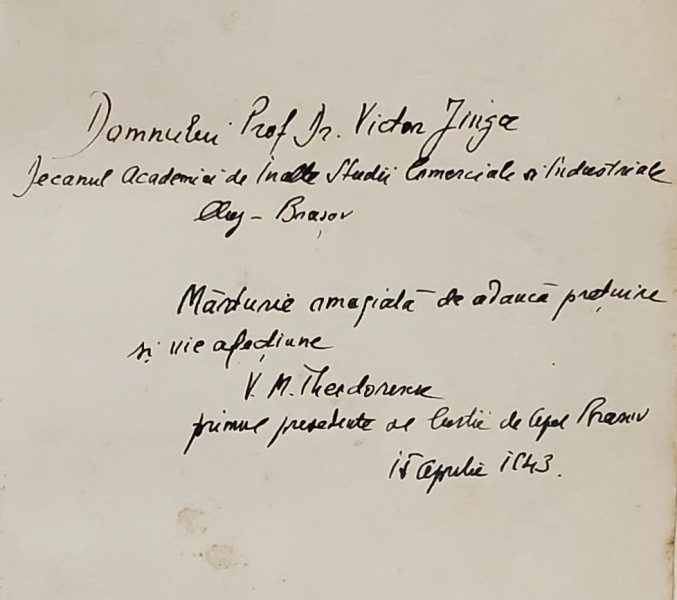 Domnului Prof Dr. Victor Jinga
Decanul Academiei de Inalte Studii Comerciale si Industriale
Cluj - Brașov
Mărturie omagială de adâncă prețuire
și vie afecțiune
V. M. Theodorescu
primul președinte al Curtii de Apel Brasov
15 Aprilie 1943.